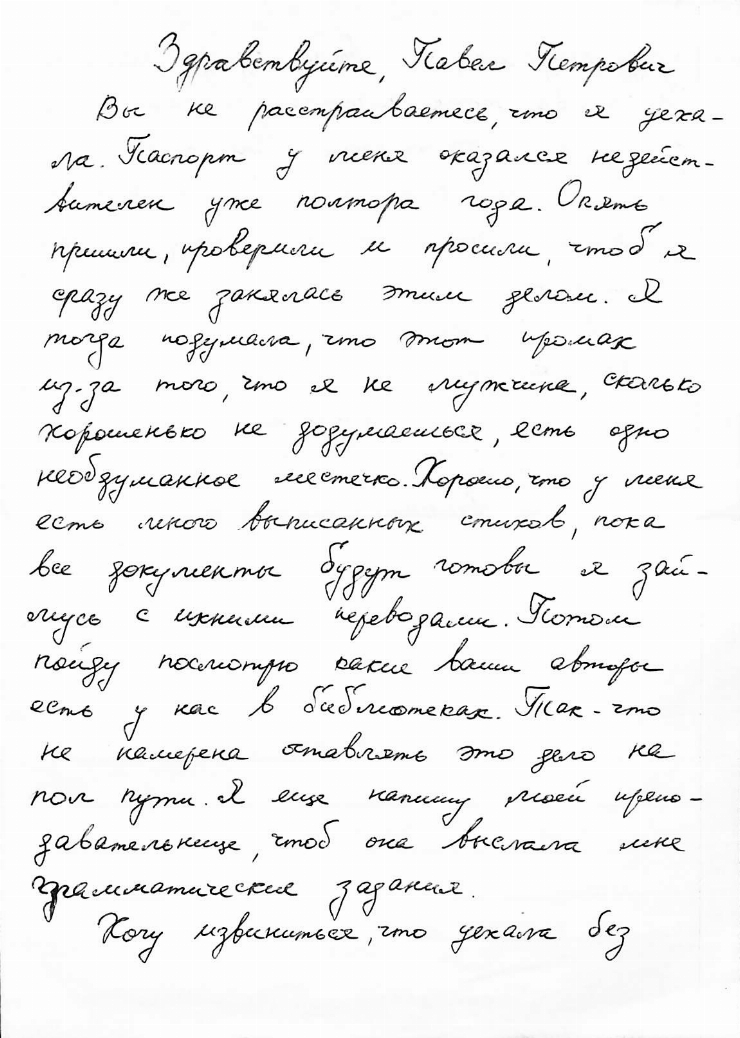 Здравствуйте, Павел Петрович
Вы не расстраиваетесь, что я уеха-
ла. Паспорт у меня оказался недейст-
вителен уже полтора года. Опять
пришли, проверили и просили, чтоб я
сразу же занялась этим делом. Я
тогда подумала, что этот промах
из-за того, что я не мужчина, сколько
хорошенько не додумаешься, есть одно
необдуманное местечко. Хорошо, что у меня
есть много выписанных стихов, пока
все документы будут готовы я зай-
мусь с ихними переводами. Потом
пойду посмотрю какие ваши авторы
есть у нас в библиотеках. Так-что
не намерена оставлять это дело на
пол пути. Я еще напишу моей препо-
давательнице, чтоб она выслала мне
грамматические задания.
Хочу извиниться, что уехала без